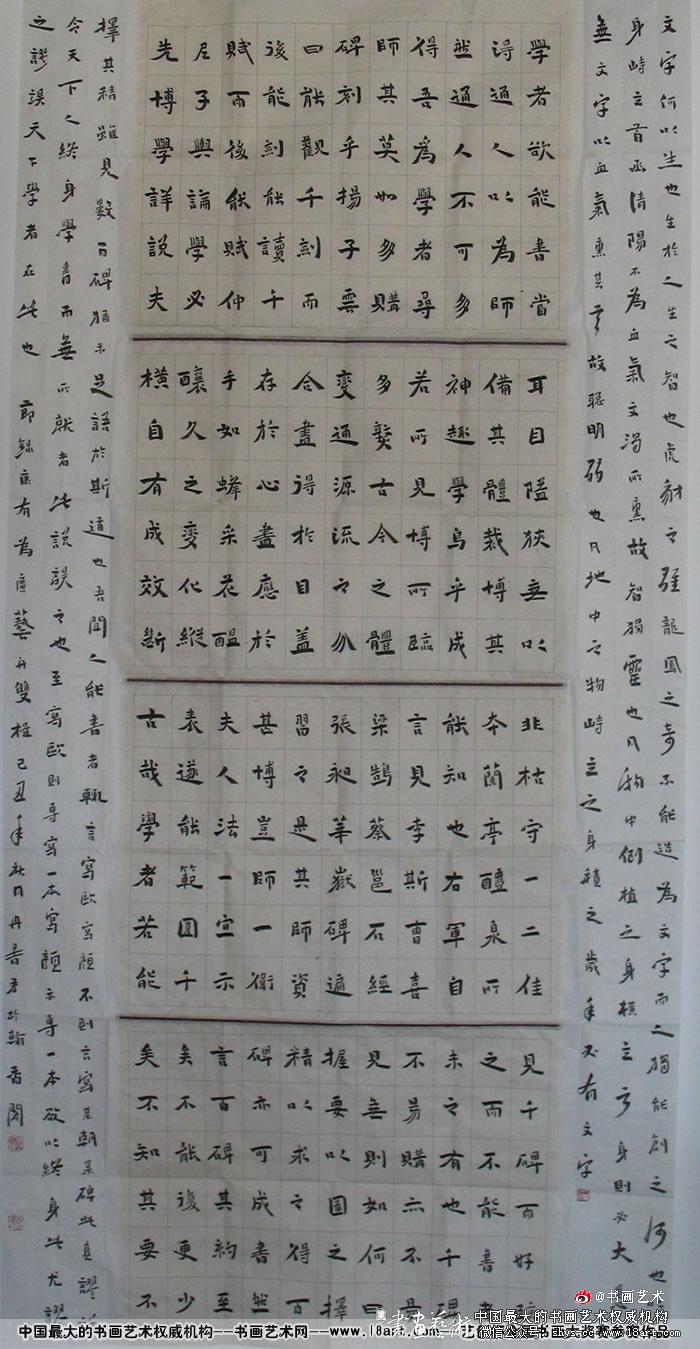 文字何以生也生於人生之智也虎豹之强龍鳳之奇不能造為文字而人獨能創之何也
身峙立首函清陽不為血氣之濁所熏故智獨靈也凡物中倒植之身橫立之身則必大
無文字以血氣熏其首故聰明弱也凡地中之物峙立之身積之歲年必有文字
學者欲能書當
得通人以為師
然通人不可多
得吾為學者尋
師其莫如多購
碑刻乎揚子雲
曰能觀千劍而
後能劍能讀千
賦而後能賦仲
尼子與論學必
先博學詳說夫
耳目隘狹無以
備其體裁博其
神趣學烏乎成
若所見博所臨
多熟古今之體
變通源流之分
合盡得於目盡
存於心盡應於
手如蜂采花醞
釀久之變化縱
橫自有成效斷
非枯守一二佳
本蘭亭醴泉所
能知也右軍自
言見李斯曹喜
梁鵠蔡邕石經
張昶華嶽碑遍
習之是其師資
甚博豈師一衛
夫人法一宣示
表遂能範圍千
古哉學者若能
見千碑百好
之而不能書者
未之有也千碑
不易購亦不易
見無則如何曰
握要以圖之擇
精以求之得百
碑亦可成書然
言百碑其約至
矣不能復更少
矣不知其要不
擇其精雖見數百碑猶未足語於斯道也吾聞之能書者輒言寫歐寫顏不則言寫某朝某碑此真謬
令天下之終身學書而無所成者此說誤之也至寫歐則專寫一本寫顏亦專一本欲以終身此尤謬
之謬誤天下學者在此也 節錄康有為廣藝舟雙楫己丑年秋月丹書於翰香閣
@书画艺术
中国最大的书画艺术权威机构---书画艺术网---www.18art.com
中国最大的书画艺术权威机构